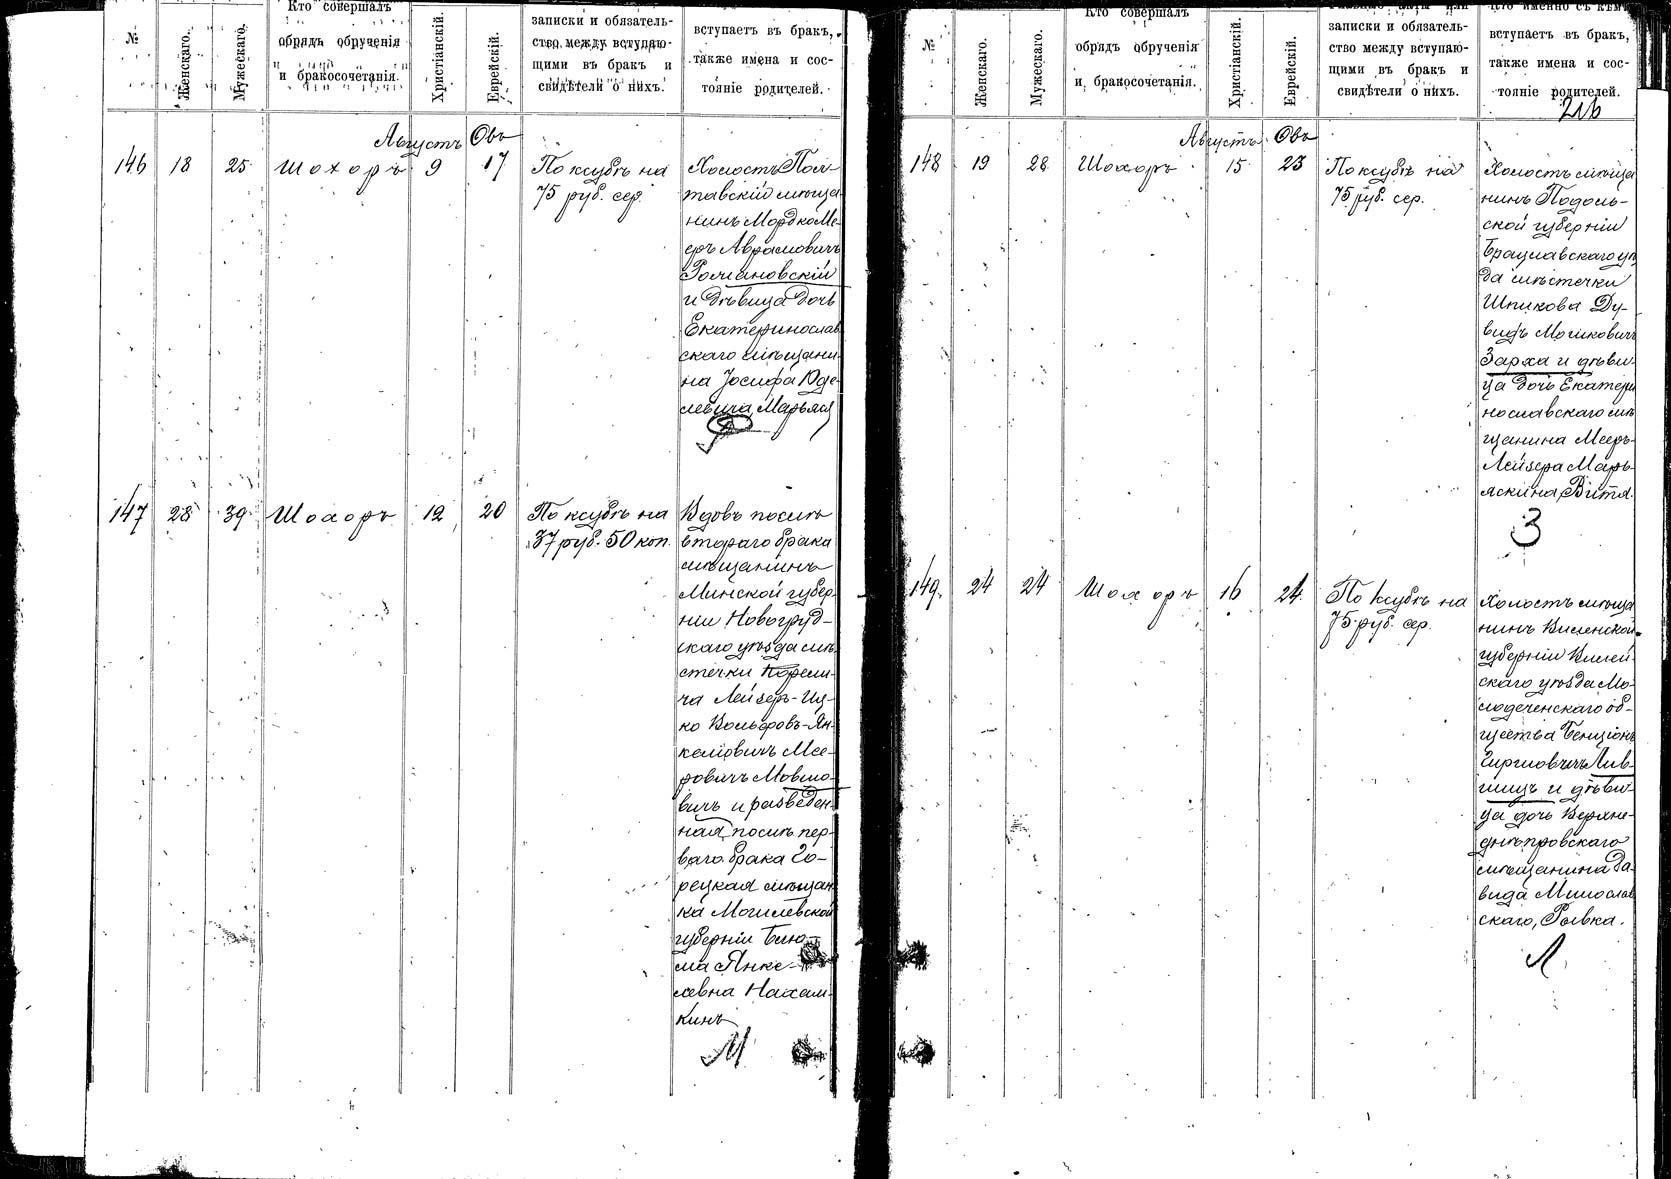 №
Женскаго.
Мужескаго.
Кто совершалъ
обрядъ обрученія
и бракосочетанія.
Христіанскій.
Еврейскій.
записки и обязатель-
ство между вступаю-
щими въ бракъ и
свидѣтели о нихъ.
вступаетъ въ бракъ,
также имена и сос-
тояніе родителей.
Августъ Овъ
146 18 25 Шохоръ 9 17
По ксубѣ на
75 руб. сер.
Холостъ Пол-
тавскій мѣща-
нинъ Мордко Ме-
еръ Аврамовичъ
Романовскій
и дѣвица дочь
Екатеринослав
скаго мѣщани-
на Іосифа Юде-
левича Марьяся
147 28 39 Шохоръ 12 20
По ксубѣ на
37 руб. 50 коп.
Вдовъ послѣ
втораго брака
мѣщанинъ
Минской губер
ніи Новогруд-
скаго уѣзда мѣ-
стечки Корели-
ча Лейзеръ-Иц-
ко Вольфовъ-Ян-
келіовичъ Мее-
ровичъ Мовшо-
вичъ и разведен-
ная послѣ пер-
ваго брака Го-
рецкая мѣщан
ка Могилевской
губерніи Блю-
ма Янке-
левна Нахам-
кинъ
М
№
Женскаго.
Мужескаго.
Кто совершалъ
обрядъ обрученія
и бракосочетанія.
Христіанскій.
Еврейскій.
записки и обязатель-
ство между вступаю-
щими въ бракъ и
свидѣтели о нихъ.
кто именно съ кѣмъ
вступаетъ въ бракъ,
также имена и сос-
тояніе родителей.
216
Августъ Овъ
148 19 28 Шохоръ 15 23
По ксубѣ на
75 руб. сер.
Холостъ мѣща
нинъ Подоль-
ской губерніи
Брацлавскаго уѣз
да мѣстечки
Шпикова Ду-
видъ Мошковичъ
Зарха и дѣви-
ца дочь Екатери
нославскаго мѣ
щанина Мееръ-
Лейзера Марь-
яскина, Витя.
З
149. 24 24 Шохоръ 16 24
По ксубѣ на
75 руб. сер.
Холостъ мѣща
нинъ Виленской
губерніи Вилей-
скаго уѣзда Мо-
лодеченскаго об-
щества Бенціонъ
Гиршовичъ Лив-
шицъ и дѣви-
ца дочь Верхне-
днѣпровскаго
мѣщанина Да-
вида Милослав
скаго, Ривка.
Л